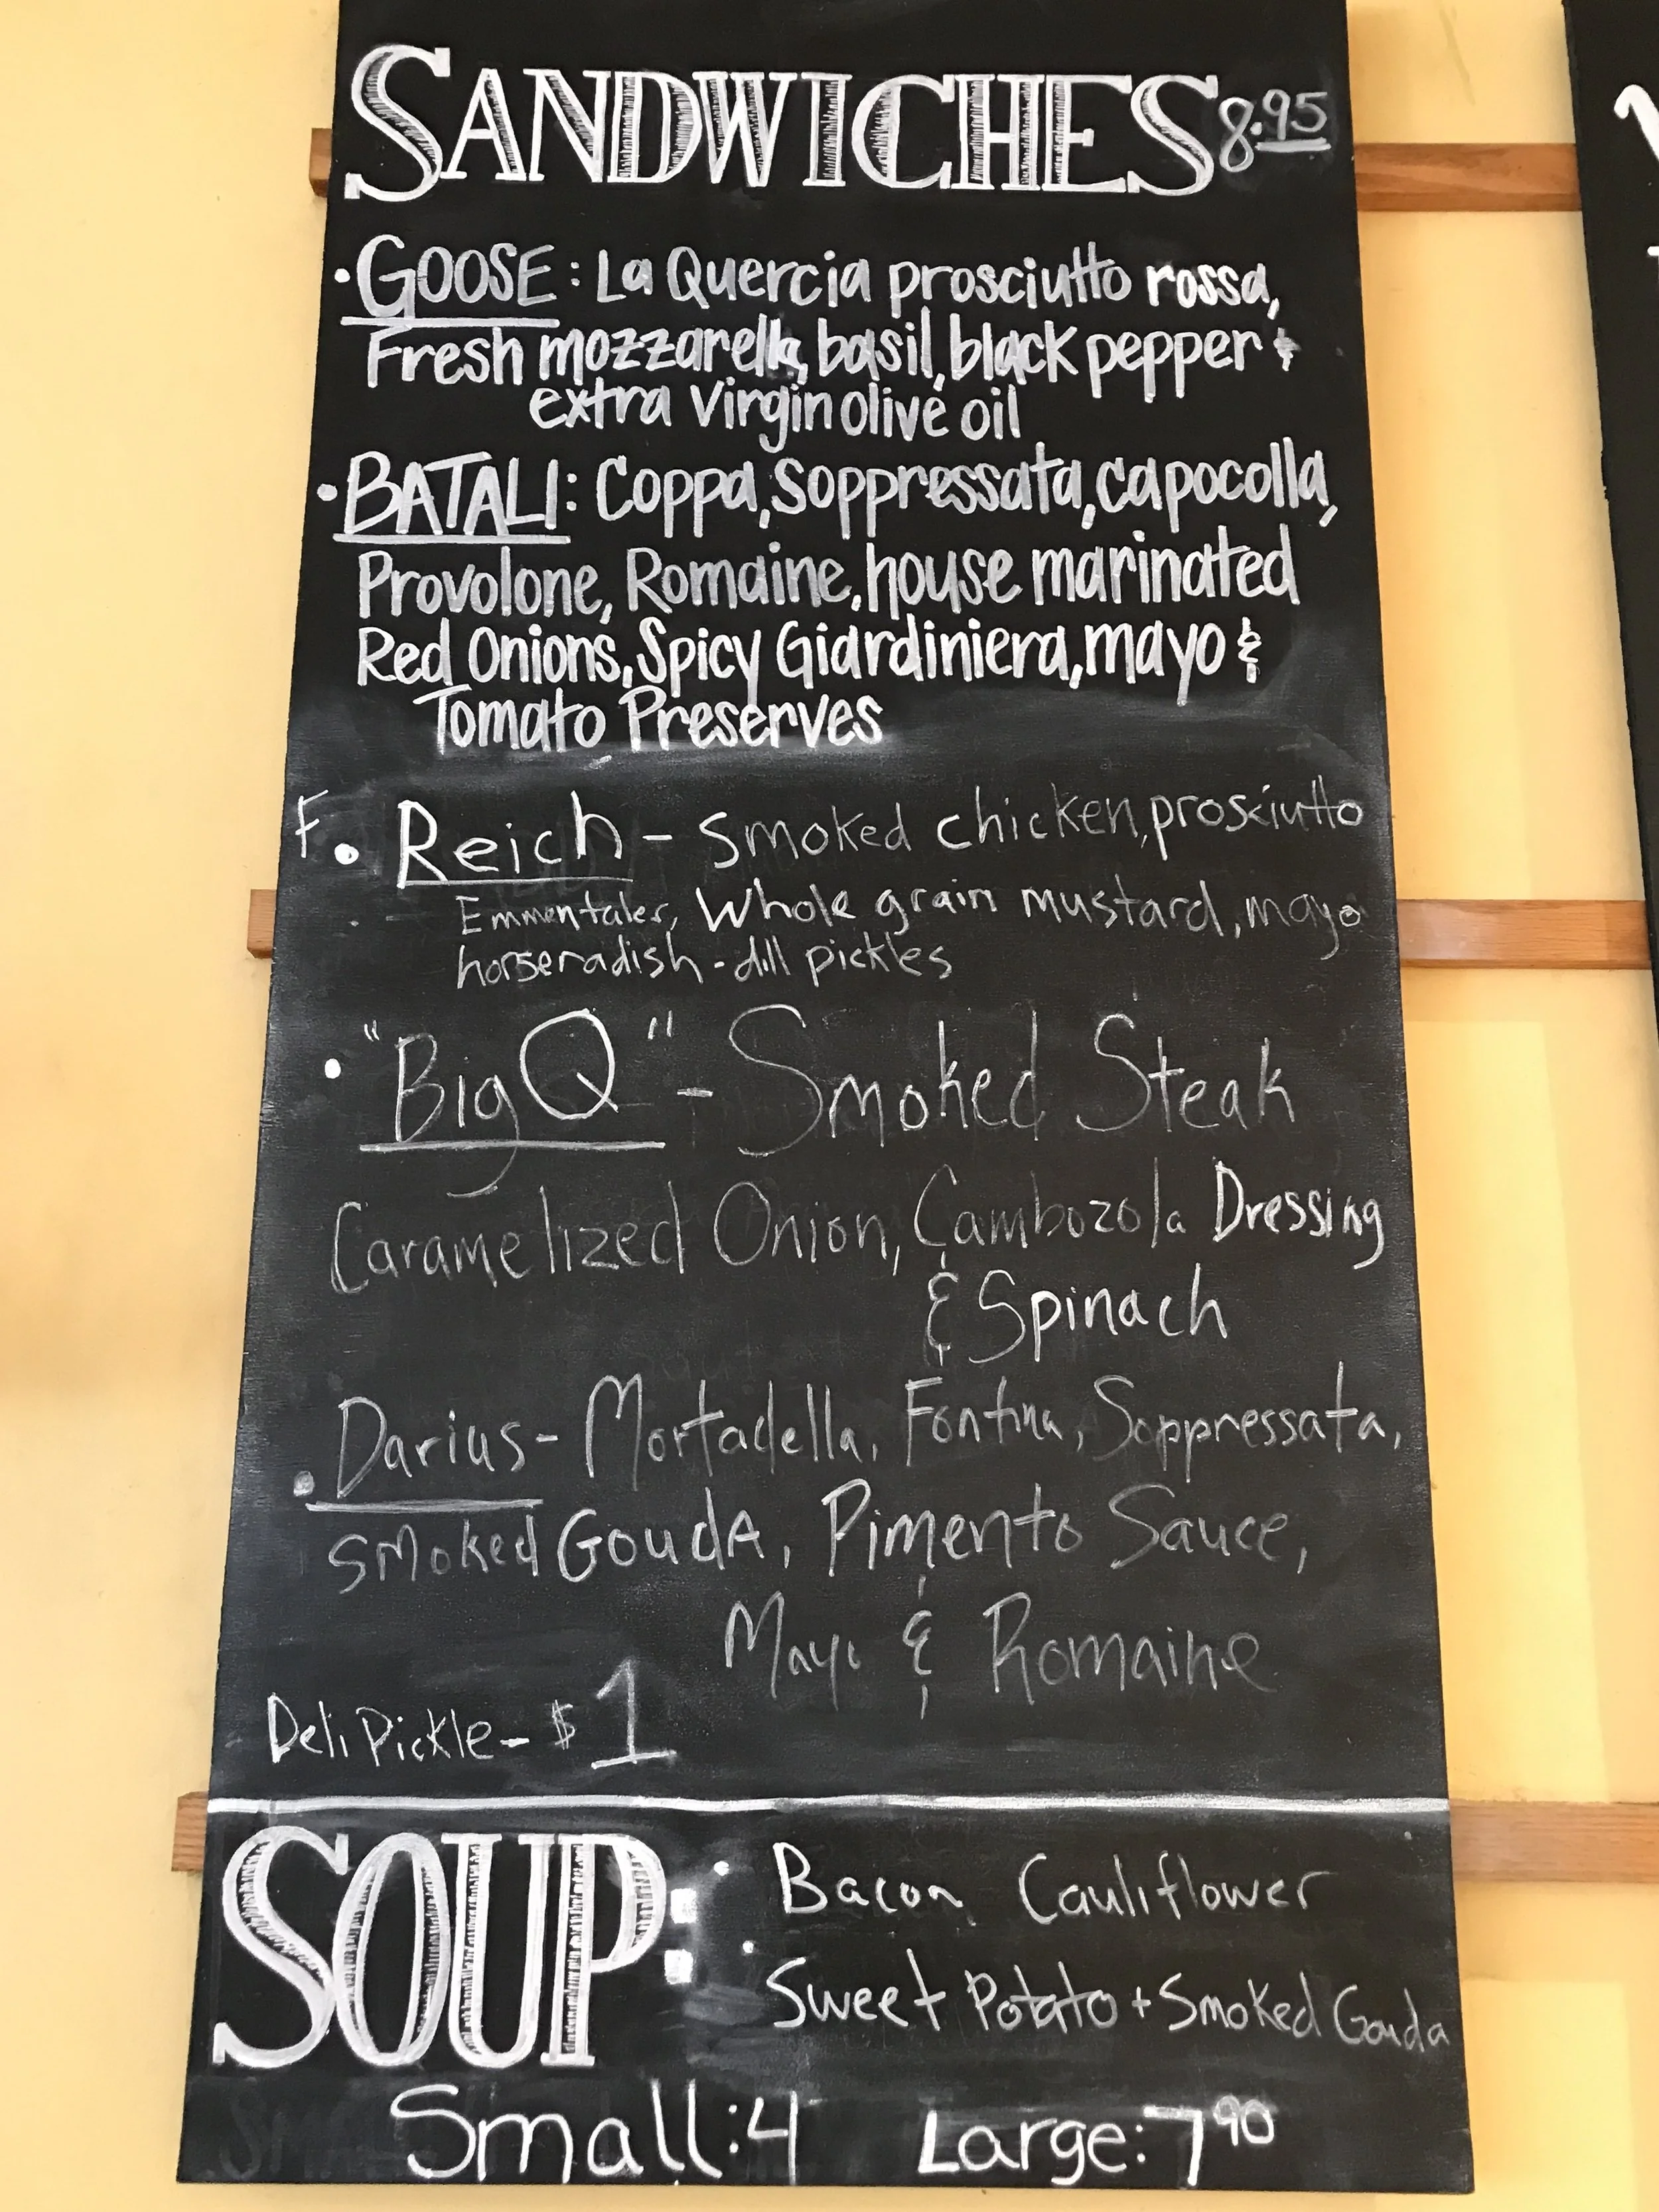 SANDWICHES 8.95
• GOOSE: La Quercia prosciutto rossa,
Fresh mozzarella, basil, black pepper &
extra virgin olive oil
• BATALI: Coppa, Soppressata, capocolla,
Provolone, Romaine, house marinated
Red Onions, Spicy Giardiniera, mayo &
Tomato Preserves
F. • Reich - smoked chicken, prosciutto
Emmentaler, Whole grain mustard, mayo
horseradish-dill pickles
• "Big Q" - Smoked Steak
Caramelized Onion, Cambozola Dressing
& Spinach
• Darius - Mortadella, Fontina, Soppressata,
smoked GoudA, Pimento Sauce,
Mayo & Romaine
Deli Pickle - $1
SOUP: • Bacon Cauliflower
• Sweet Potato + Smoked Gouda
Small: 4 Large: 7 90